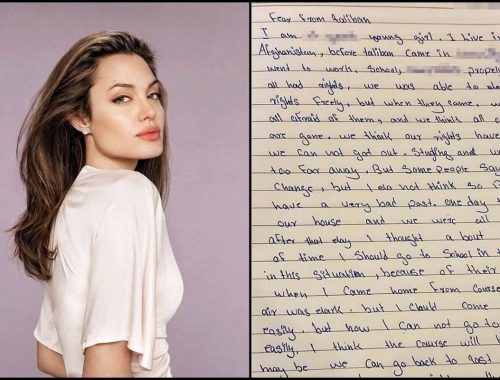 Fear From taliban
I am young girl. I live in
Afghanistan, before taliban came in
went to work, School, propely
all had rights, we was able to
rights Freely, but when they came,
all afraid of them, and we think all
are gone. we think our rights have
we can not got out. Studing and
too far away. But Some people Say
Change, but I do not think So
have a very bad past. one day
our house and we were all
after that day I thought a bout
of time I Should go to School in
in this Situation, because of their
when I came home From Course
air was dark. but I Could Come
easily. but now I can not go to
easily. I think the course will
may be we can go back to last